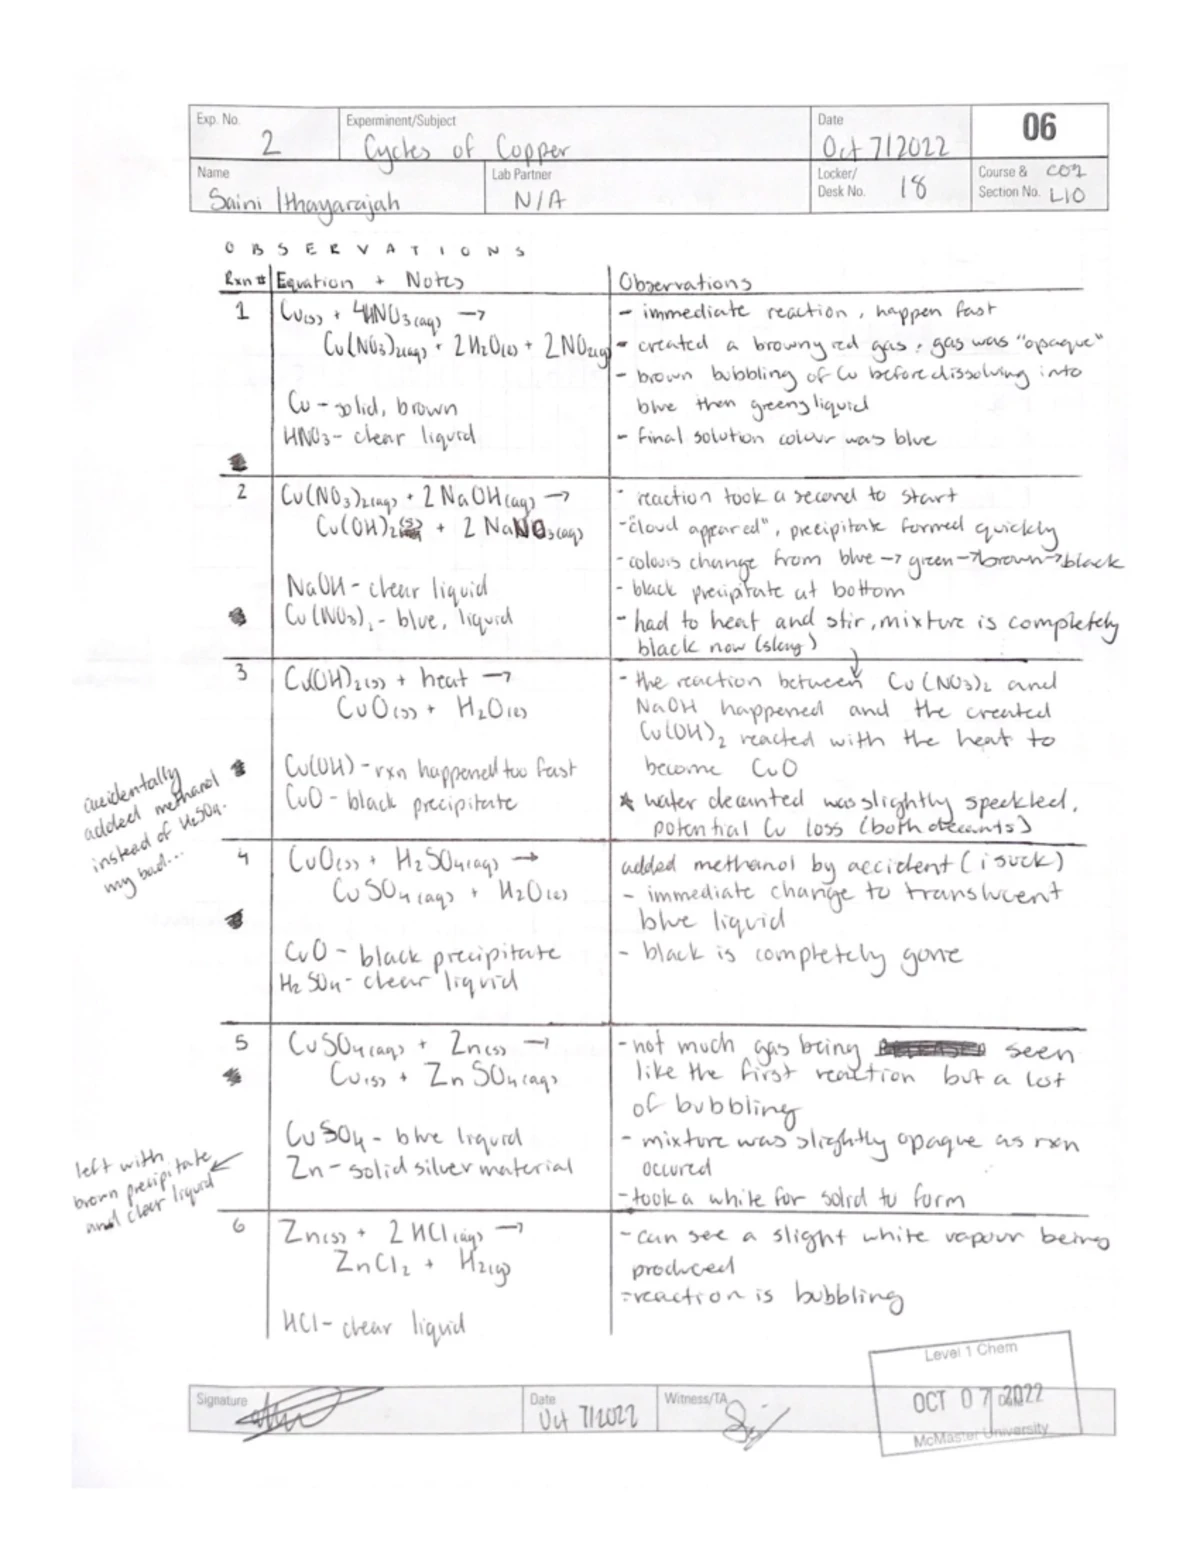 Exp. No.
2
Experminent/Subject
Cycles of Copper
Date
Oct 7/2022
06
Name
Saini Ithayarajah
Lab Partner
N/A
Locker/
Desk No.
18
Course & C02
Section No. L10
OBSERVATIONS
Rxn # Equation + Notes
Observations
1
Cu(s) + 4HNO3(aq) →
Cu(NO3)2(aq) + 2H2O(l) + 2NO2(g)
Cu - solid, brown
HNO3 - clear liquid
- immediate reaction, happen fast
- created a browny red gas, gas was "opaque"
- brown bubbling of Cu before dissolving into
blue then greeny liquid
- Final solution colour was blue
2
Cu(NO3)2(aq) + 2 NaOH(aq) →
Cu(OH)2(s) + 2 NaNO3(aq)
NaOH - clear liquid
Cu(NO3)2 - blue, liquid
- reaction took a second to start
- "cloud appeared", precipitate formed quickly
- colours change from blue → green → brown → black
- black precipitate at bottom
- had to heat and stir, mixture is completely
black now (slay)
3
Cu(OH)2(s) + heat →
CuO(s) + H2O(l)
Cu(OH) - rxn happened too fast
CuO - black precipitate
- the reaction between Cu(NO3)2 and
NaOH happened and the created
Cu(OH)2 reacted with the heat to
become CuO
* water decanted was slightly speckled,
potential Cu loss (both decants)
accidentally
added methanol
instead of H2SO4.
my bad...
4
CuO(s) + H2SO4(aq) →
CuSO4(aq) + H2O(l)
CuO - black precipitate
H2SO4 - clear liquid
added methanol by accident (i suck)
- immediate change to translucent
blue liquid
- black is completely gone
5
CuSO4(aq) + Zn(s) →
Cu(s) + ZnSO4(aq)
CuSO4 - blue liquid
Zn - solid silver material
- not much gas being seen
like the first reaction but a lot
of bubbling
- mixture was slightly opaque as rxn
occured
- took a while for solid to form
left with
brown precipitate
and clear liquid
6
Zn(s) + 2 HCl(aq) →
ZnCl2 + H2(g)
HCl - clear liquid
- can see a slight white vapour being
produced
- reaction is bubbling
Signature
Date
Oct 7/2022
Witness/TA
Level 1 Chem
OCT 07 2022
McMaster University